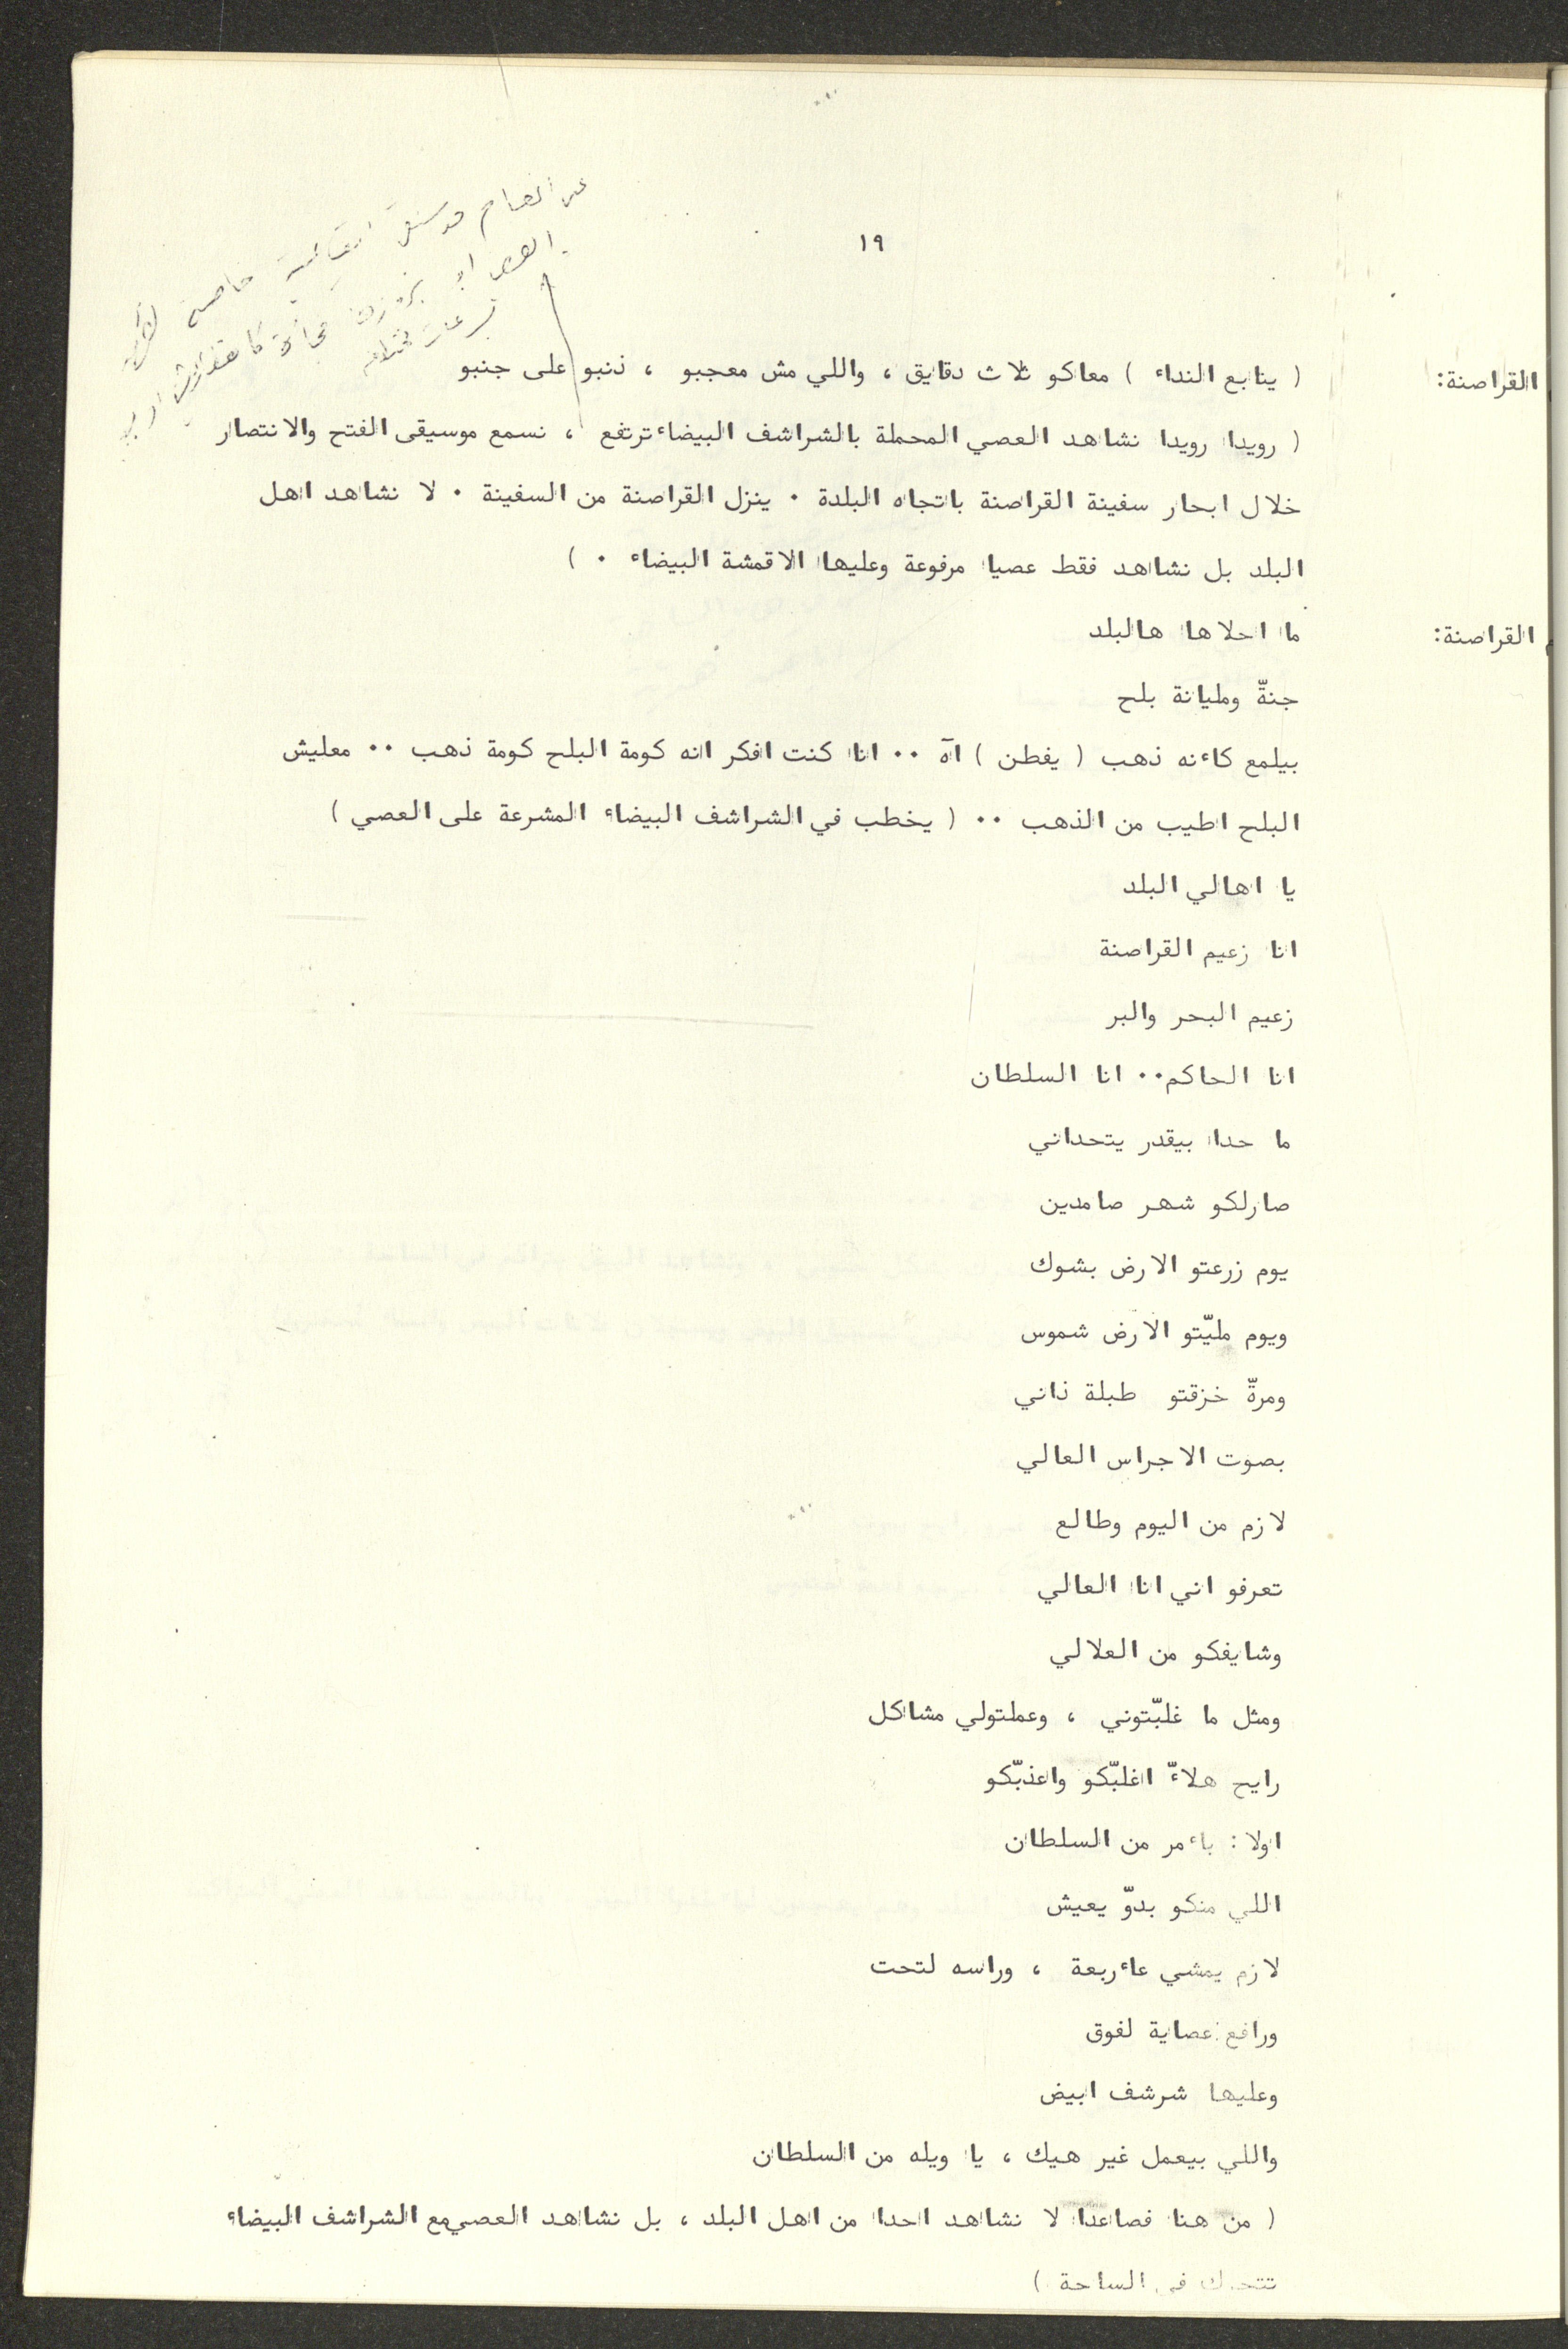 ١٩
على انغام موسيقى
القراصنة: ( يتابع النداء ) معاكو ثلاث دقايق ، واللي مش معجبو ، ذنبو على جنبو
( رويدا رويدا نشاهد العصي المحملة بالشراشف البيضاء ترتفع ، نسمع موسيقى الفتح والانتصار
خلال ابحار سفينة القراصنة باتجاه البلدة ٠ ينزل القراصنة من السفينة ٠ لا نشاهد اهل
البلد بل نشاهد فقط عصيا مرفوعة وعليها الاقمشة البيضاء ٠ )
م القراصنة: ما احلاها هالبلد
جنةّ ومليانة بلح
بيلمع كاءنه ذهب ( يفطن ) آه ٠٠ انا كنت افكر انه كومة البلح كومة ذهب ٠٠ معليش
البلح اطيب من الذهب ٠٠ ( يخطب في الشراشف البيضاء المشرعة على العصي )
يا اهالي البلد
انا زعيم القراصنة
زعيم البحر والبر
انا الحاكم٠٠ انا السلطان
ما حدا بيقدر يتحداني
صارلكو شهر صامدين
يوم زرعتو الارض بشوك
ويوم مليّتو الارض شموس
ومرةّ خزقتو طبلة ذاني
بصوت الاجراس العالي
لازم من اليوم وطالع
تعرفو اني انا العالي
وشايفكو من العلالي
ومثل ما غلبّتوني ، وعملتولي مشاكل
رايح هلاءّ اغلبّكو واعذبّكو
اولا : باءمر من السلطان
اللي منكو بدوّ يعيش
لازم يمشي عاءربعة ، وراسه لتحت
ورافع عصاية لفوق
وعليها شرشف ابيض
واللي بيعمل غير هيك ، يا ويله من السلطان
( من هنا فصاعدا لا نشاهد احدا من اهل البلد ، بل نشاهد العصي مع الشراشف البيضاء
تتحرك في الساحة )